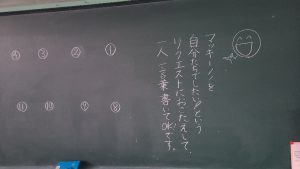 マッキーノを
自分たちでしたい!という
リクエストにおこたえして、
一人一言葉書いてOKです。
① ② ③ ④
⑧ ⑨ ⑩ ⑪